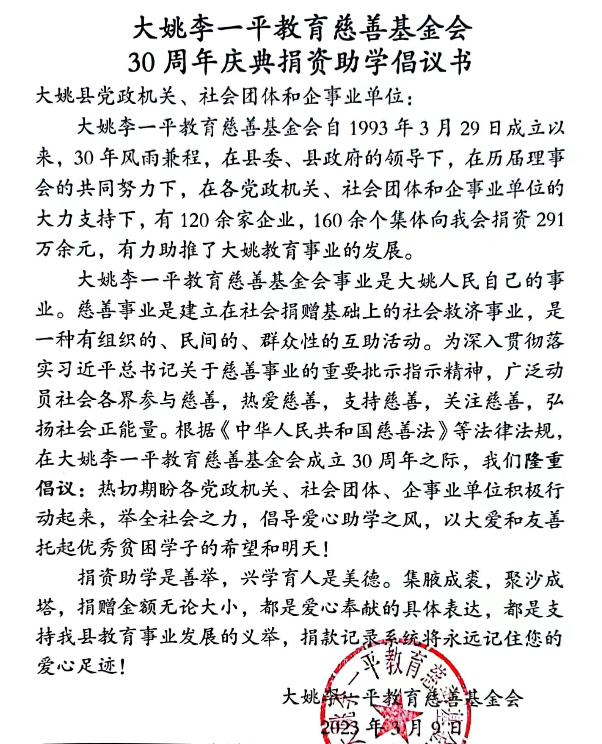 大姚李一平教育慈善基金会
30 周年庆典捐资助学倡议书
大姚县党政机关、社会团体和企事业单位：
大姚李一平教育慈善基金会自 1993 年 3 月 29 日成立以
来，30 年风雨兼程，在县委、县政府的领导下，在历届理事
会的共同努力下，在各党政机关、社会团体和企事业单位的
大力支持下，有 120 余家企业，160 余个集体向我会捐资 291
万余元，有力助推了大姚教育事业的发展。
大姚李一平教育慈善基金会事业是大姚人民自己的事
业。慈善事业是建立在社会捐赠基础上的社会救济事业，是
一种有组织的、民间的、群众性的互助活动。为深入贯彻落
实习近平总书记关于慈善事业的重要批示指示精神，广泛动
员社会各界参与慈善，热爱慈善，支持慈善，关注慈善，弘
扬社会正能量。根据《中华人民共和国慈善法》等法律法规，
在大姚李一平教育慈善基金会成立 30 周年之际，我们隆重
倡议：热切期盼各党政机关、社会团体、企事业单位积极行
动起来，举全社会之力，倡导爱心助学之风，以大爱和友善
托起优秀贫困学子的希望和明天！
捐资助学是善举，兴学育人是美德。集腋成裘，聚沙成
塔，捐赠金额无论大小，都是爱心奉献的具体表达，都是支
持我县教育事业发展的义举，捐款记录系统将永远记住您的
爱心足迹！
大姚李一平教育慈善基金会
2023 年 3 月 9 日